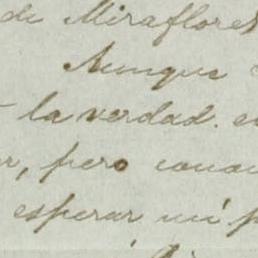 de Miraflores
Aunque
la verdad. e
r, pero cono
esperar mi p